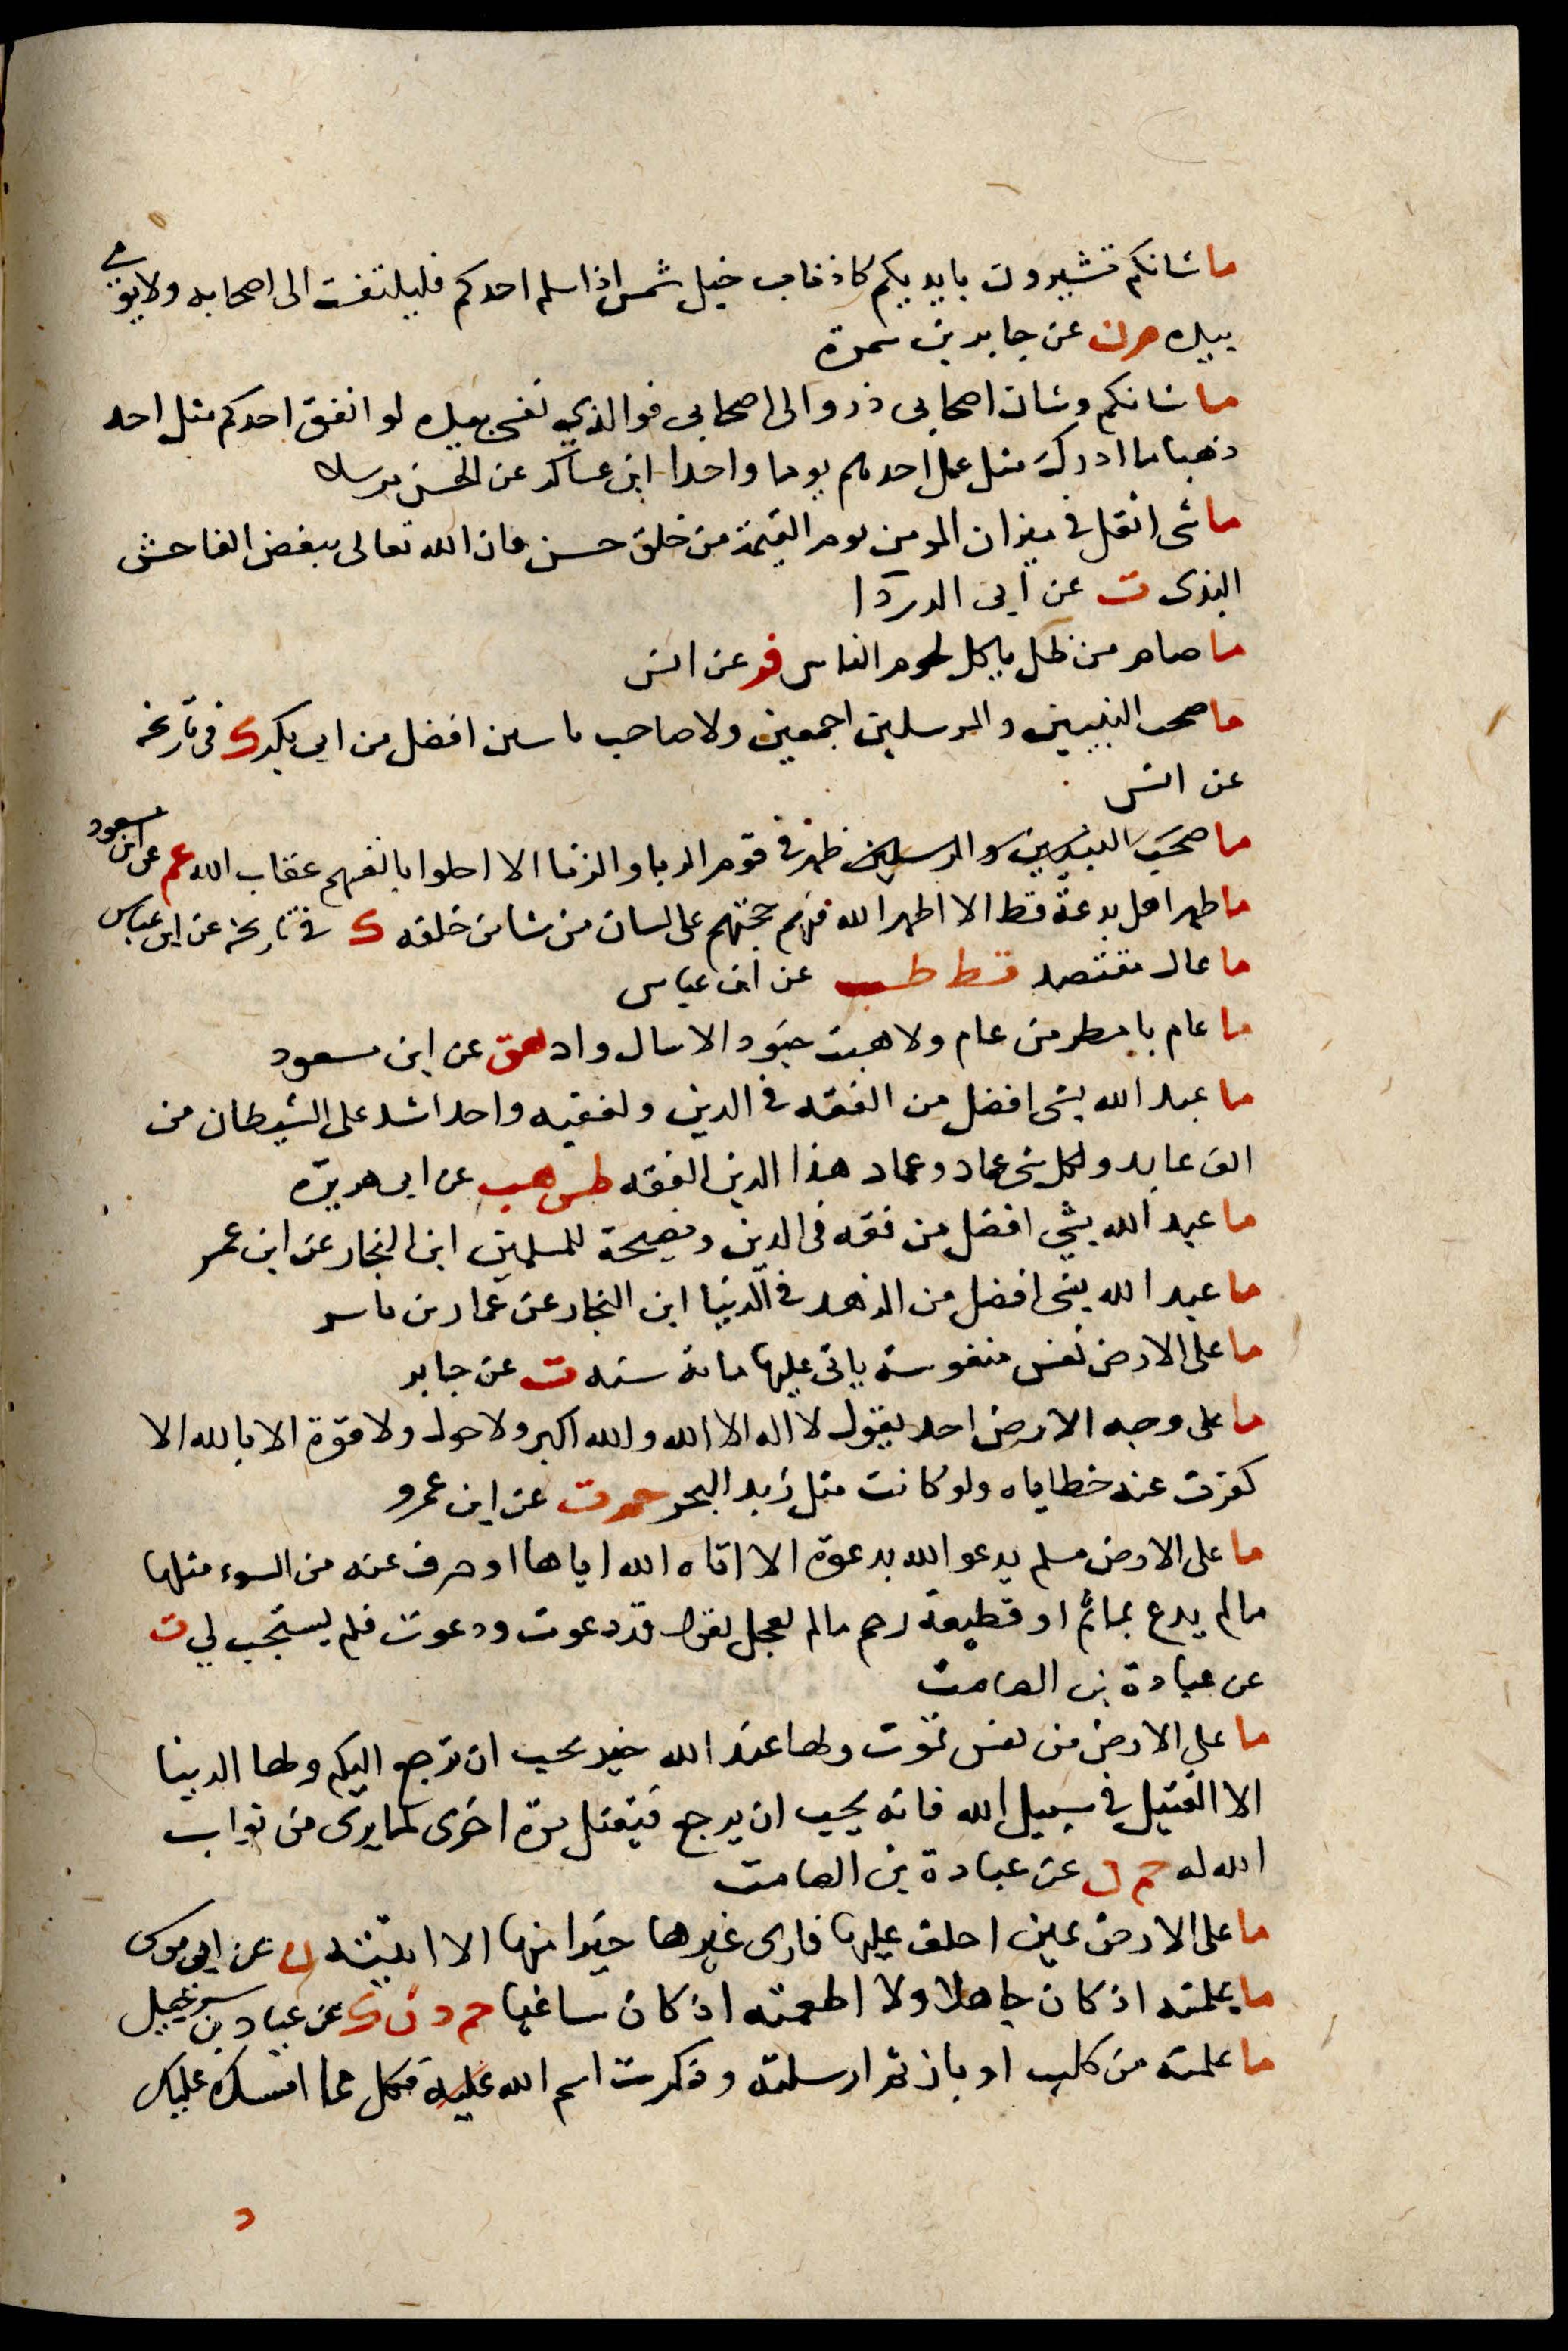 ما شانكم تشيرون بايديكم كاذناب خيل شمس اذا سلم احدكم فليلتفت الى اصحابه ولا يومي
بيده م د ن عن جابر بن سمرة
ما شانكم وشان اصحابى ذروا لى اصحابى فوالذي نفسي بيده لو انفق احدكم مثل احد
ذهبا ما ادرك مثل عمل احدهم يوما واحدا ابن عساكر عن الحسن مرسلا
ما شى اثقل فى ميزان المومن يوم القيمة من خلق حسن فان الله تعالى يبغض الفاحش
البذى ت عن ابى الدردا
ما صام من ظل ياكل لحوم الناس فر عن انس
ما صحب النبيين والمرسلين اجمعين ولا صاحب ياسين افضل من ابى بكر ك فى تاريخه
عن انس
ما صحب النبيين والمرسلين ظهر فى قوم الربا والزنا الا احلوا بانفسهم عقاب الله عم عن ابن مسعود
ما ظهر اهل بدعة قط الا اظهر الله فيهم حجته على لسان من شا من خلقه ك فى تاريخه عن ابن عباس
ما عال مقتصد قط طب عن ابن عباس
ما عام بامطر من عام ولا هبت جنود الا سال واد هق عن ابن مسعود
ما عبد الله بشى افضل من الفقه فى الدين ولفقيه واحد اشد على الشيطان من
الف عابد ولكل شى عماد وعماد هذا الدين الفقه طس هب عن ابى هريرة
ما عبد الله بشي افضل من فقه فى الدين ونصيحة للمسلمين ابن النجار عن ابن عمر
ما عبد الله بشى افضل من الزهد فى الدنيا ابن النجار عن عمار بن ياسر
ما على الارض نفس منفوسة ياتى عليها مائة سنه ت عن جابر
ما على وجه الارض احد يقول لا اله الا الله والله اكبر ولا حول ولا قوة الا بالله الا
كفرت عنه خطاياه ولو كانت مثل زبد البحر حم ت عن ابن عمرو
ما على الارض مسلم يدعو الله بدعوة الا اتاه الله اياها او صرف عنه من السوء مثلها
مالم يدع بمائم او قطيعة رحم مالم يعجل يقول قد دعوت ودعوت فلم يستجب لي ت
عن عبادة بن الصامت
ما على الارض من نفس تموت ولها عند الله خير تحب ان ترجع اليكم ولها الدنيا
الا القتيل فى سبيل الله فانه يحب ان يرجع فيقتل مرة اخرى لما يرى من ثواب
الله له حم ن عن عبادة بن الصامت
ما على الارض عين احلف عليها فارى غيرها خيرا منها الا اتيته ن عن ابى موسى
ما علمته اذ كان جاهلا ولا اطعمته اذ كان ساغبا حم د ن ك عن عباد بن شرحبيل
ما علمته من كلب او باز ثم ارسلته وذكرت اسم الله عليه فكل مما امسك عليك